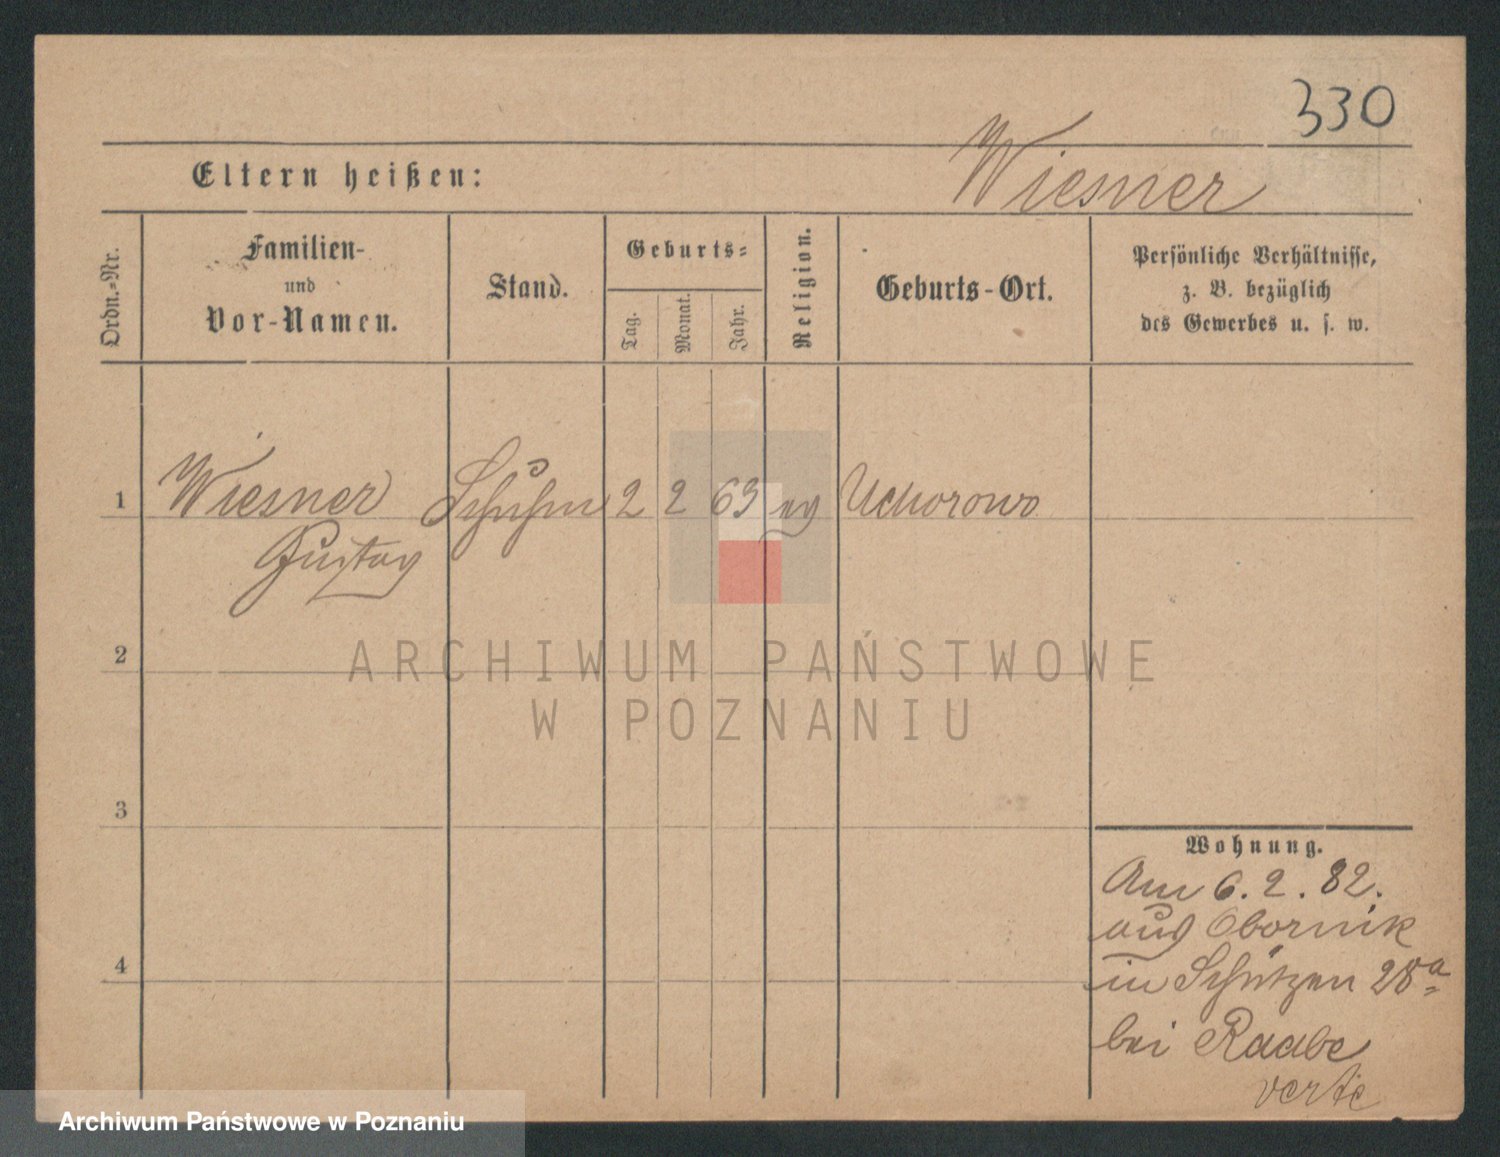 330
Eltern heißen:
Wiesner
Ordn.-Nr.
Familien-
und
Vor-Namen.
Stand.
Geburts-
Tag.
Monat.
Jahr.
Religion.
Geburts-Ort.
Persönliche Verhältnisse,
z. B. bezüglich
des Gewerbes u. s. w.
1 Wiesner Schuhm 2 2 63 ev Uchorowo
Gustav
2
ARCHIWUM PAŃSTWOWE
W POZNANIU
3
Wohnung.
Am 6.2.82.
aus Obornik
4
in Schützen 28a
bei Raabe
verte
Archiwum Państwowe w Poznaniu